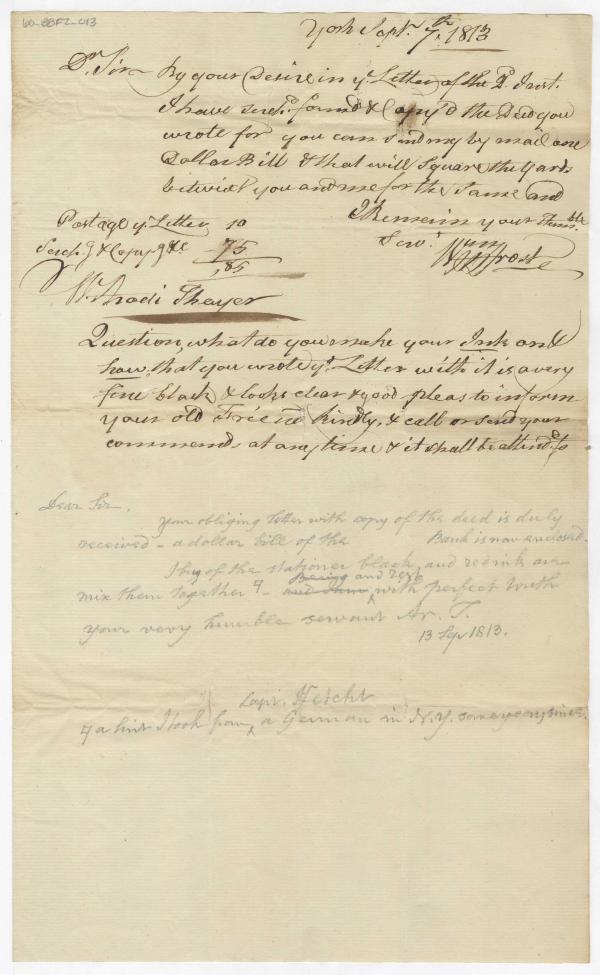 60-BBF2-013
York Sept. 7th, 1813
Dr. Sir By your Desire in yr. Letter of the 2d. Inst.
I have serchd. found & Copy'd the Deed you
wrote for you can send my by mail one
Dollar Bill & that will Square the yards
betwixt you and me for the Same and
I Remain your Humble
Postage yr. Letter 10
Serv't.
Serch.g & Copy.g &c 75
Wm Frost
,85
Question, what do you make your Ink on &
how, that you wrote yr. Letter with it is a very
fine black & looks clear & good pleas to inform
your old Friend kindly, & call or send your
commends at any time & it shall be attend to
Dear Sir,
your obliging letter with copy of the deed is duly
received - a dollar bill of the Bank is now enclosed.
I buy of the stationer black, and red ink and
Being and rest
mix them together - with perfect truth
your very humble servant Ar. T.
13 Sep 1813.
Capt.
a hint I took from a German in N.Y. some years since.